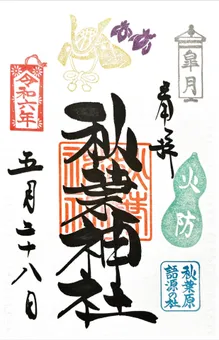 皐月
奉拝
火防
秋葉神社
秋葉原
語源の社
令和六年
五月二十八日